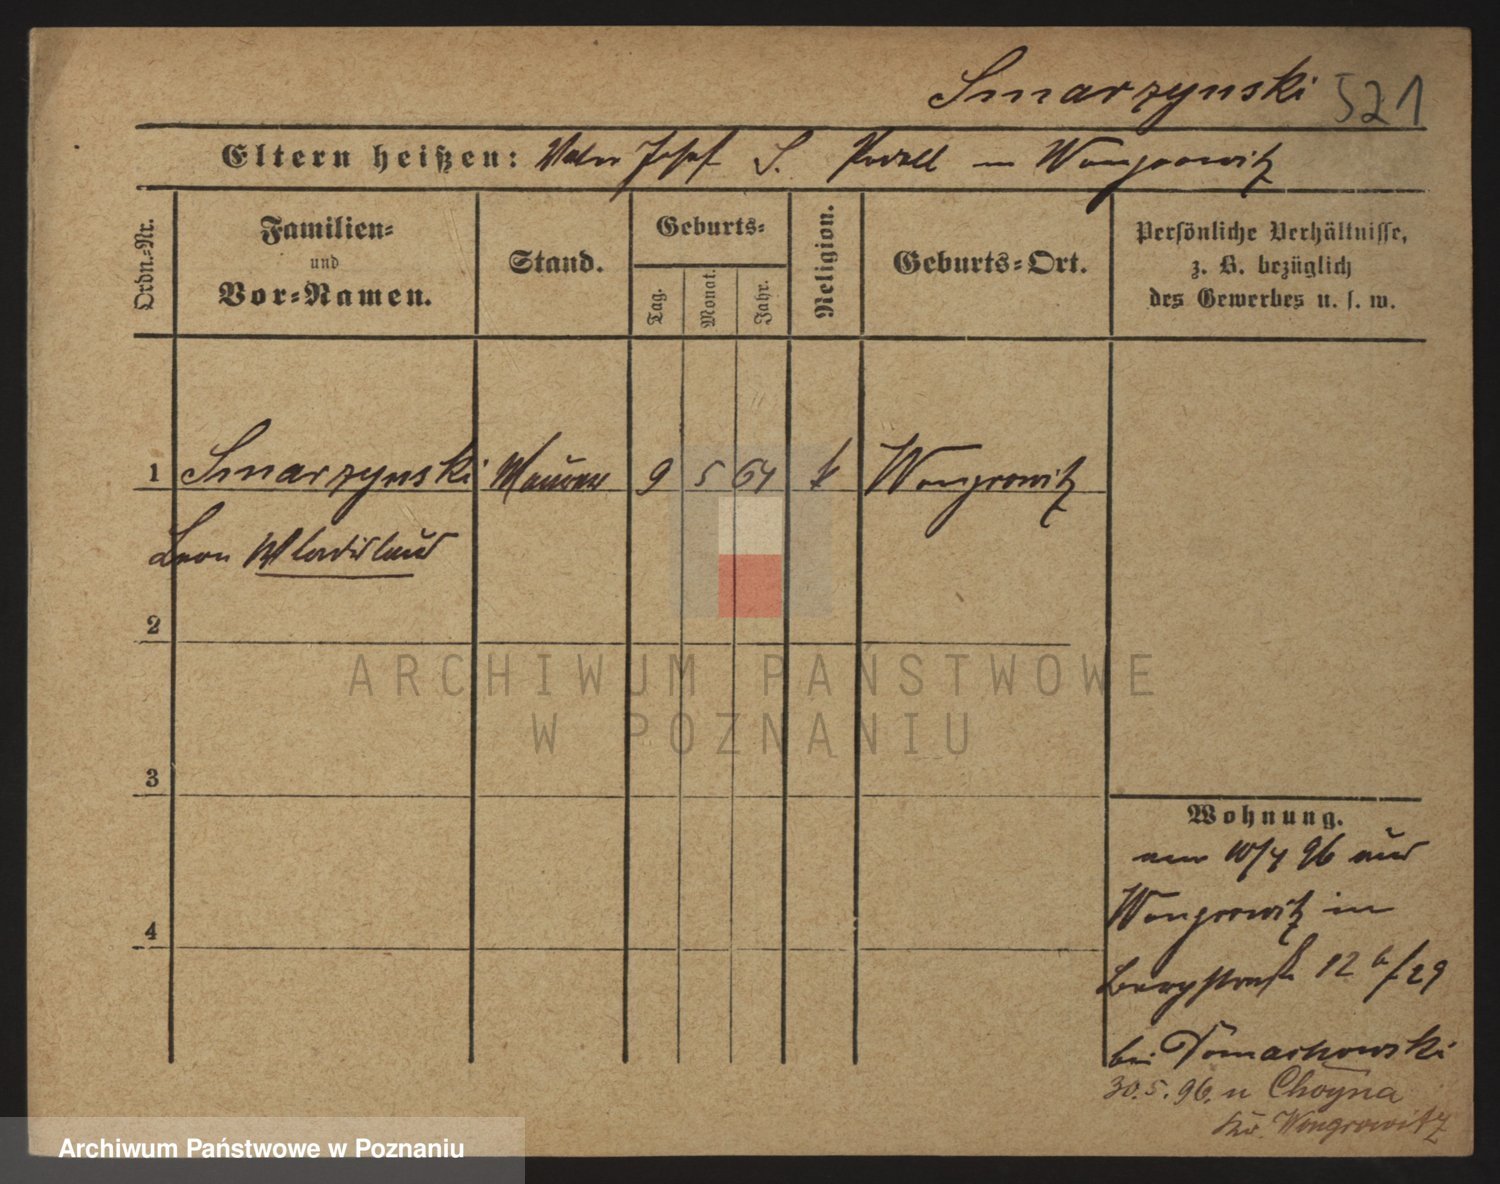 Smarzynski 521
Eltern heißen: Vater Josef S. in Wongrowitz
Ordn.-Nr.
Familien-
und
Vor-Namen.
Stand.
Geburts-
Tag.
Monat.
Jahr.
Religion.
Geburts-Ort.
Persönliche Verhältnisse,
z. B. bezüglich
des Gewerbes u. s. w.
1 Smarzynski Maurer 9 5 64 k Wongrowitz
Leon Wladislaus
2
3
4
Wohnung.
am 10/4 96 aus
Wongrowitz in
Bergstraße 12 b/29
bei Tomachowski
30.5.96. n Choyna
Kr. Wongrowitz
ARCHIWUM PAŃSTWOWE
W POZNANIU
Archiwum Państwowe w Poznaniu